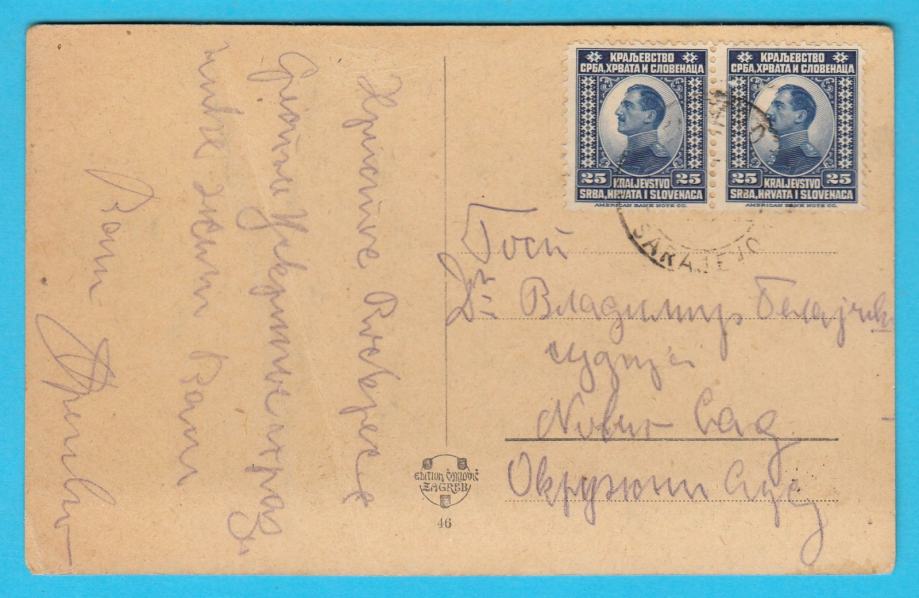 Христос Воскресе
Срећан Ускршње праз
нике жели Вам
Ваш
КРАЉЕВСТВО
СРБА, ХРВАТА И СЛОВЕНАЦА
25 KRALJEVSTVO 25
SRBA, HRVATA I SLOVENACA
AMERICAN BANK NOTE CO.
КРАЉЕВСТВО
СРБА, ХРВАТА И СЛОВЕНАЦА
25 KRALJEVSTVO 25
SRBA, HRVATA I SLOVENACA
AMERICAN BANK NOTE CO.
SARAJEVO
Госп
Др Владимир Белајчић
судија
Нови Сад
Окружни Суд
EDITION ČAKLOVIĆ
ZAGREB
46